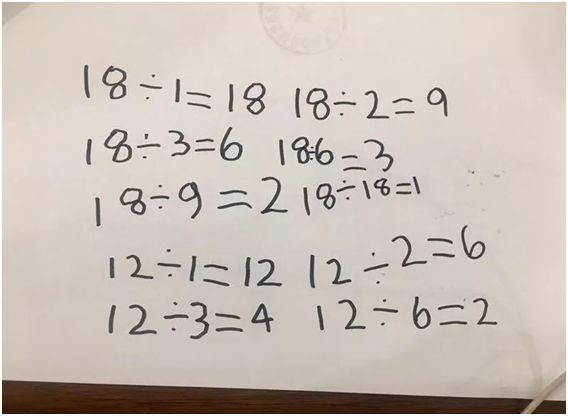 18÷1=18 18÷2=9
18÷3=6 18÷6=3
18÷9=2 18÷18=1
12÷1=12 12÷2=6
12÷3=4 12÷6=2